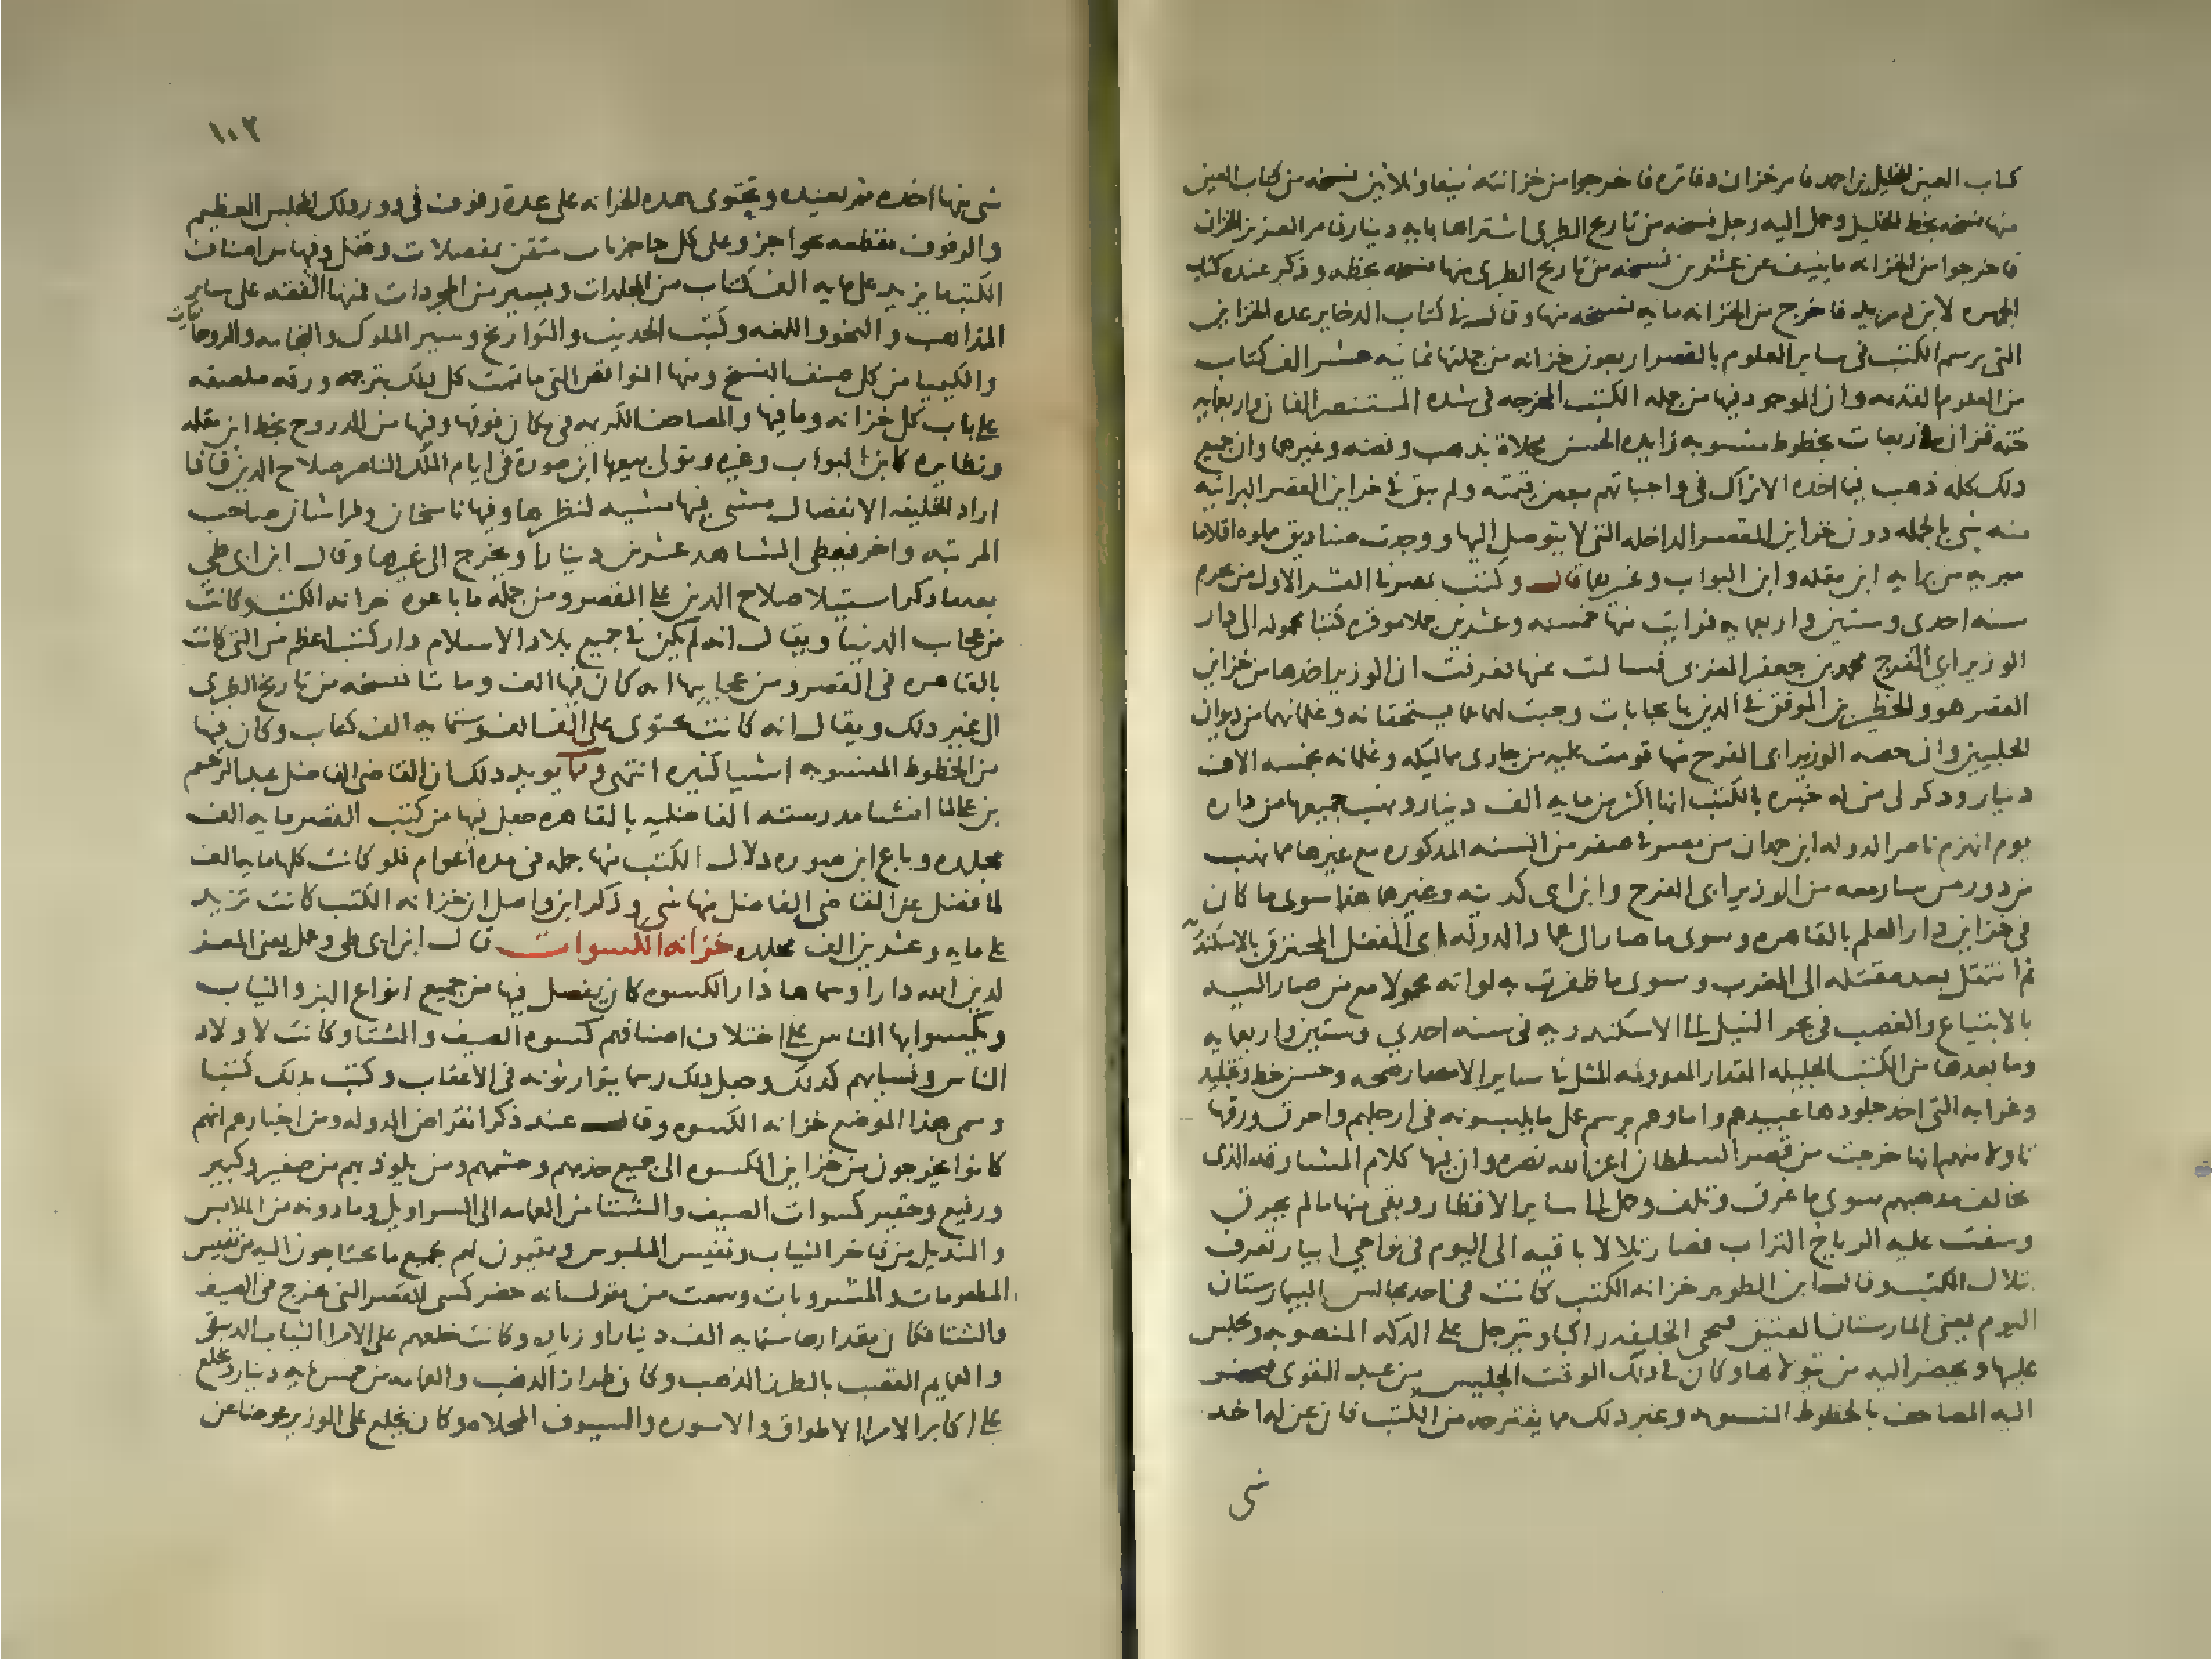 كتاب العين للخليل بن احمد فامر خزان دفاتره فاخرجوا من خزانته نيفا وثلاثين نسخه من كتاب العين
منها نسخه بخط الخليل وحمل اليه رجل نسخه من تاريخ الطبرى اشتراها بمايه دينار فامر العزيز الخزان
فاخرجوا من الخزانه ما ينيف عن عشرين نسخه من تاريخ الطبرى منها نسخه بخطه وذكر عنده كتاب
الجمهره لابن دريد فاخرج من الخزانه مايه نسخه منها وقال فى كتاب الدخاير عده الخزاين
التى برسم الكتب فى ساير العلوم بالقصر اربعون خزانه من جملتها ثمانيه عشر الف كتاب
من العلوم القديمه وان الموجود فيها من جمله الكتب المخرجه فى شده المستنصر الفان واربعمايه
ختمه قران فى ربعات بخطوط منسوبه زايده الحسن محلاة بذهب وفضه وغيرها وان جميع
ذلك كله ذهب فيما اخذه الاتراك فى واجباتهم ببعض قيمته ولم يبق فى خزاين القصر البرانيه
منه شى بالجمله دون خزاين القصر الداخله التى لا يتوصل اليها ووجدت صناديق مملوه اقلاما
مبريه من برايه ابن مقله وابن البواب وغيرهما قال وكنت بمصر فى العشر الاول من محرم
سنه احدى وستين واربعمايه فرايت فيها خمسه وعشرين جملا موقره كتبا محموله الى دار
الوزير ابى الفرج محمد بن جعفر المغربى فسالت عنها فعرفت ان الوزير اخذها من خزاين
القصر هو والخطير بن الموفق فى الدين بايجابات وجبت لهما عما يستحقانه وغلمانهما من ديوان
الحلبيين وان حصه الوزير ابى الفرج منها قومت عليه من جارى مماليكه وغلمانه بخمسه الاف
دينار وذكر لى من له خبره بالكتب انها اكثر من مايه الف دينار ونهب جميعها من داره
يوم انهزم ناصر الدوله ابن حمدان من مصر فى صفر من السنه المذكوره مع غيرها مما نهب
من دور من سار معه من الوزير ابى الفرج وابن ابى كدينه وغيرهما هذا سوى ما كان
فى خزاين دار العلم بالقاهره وسوى ما صار الى عماد الدوله ابى الفضل المحترق بالاسكندريه
ثم انتقل بعد مقتله الى المغرب وسوى ما ظفرت به لواته محمولا مع من صار اليه
بالابتياع والغصب فى بحر النيل الى الاسكندريه فى سنه احدى وستين واربعمايه
وما بعدها من الكتب الجليله المقدار المعدومه المثل فى ساير الامصار صحه وحسن خط وتجليد
وغرابه التى اخذ جلودها عبيدهم واماوهم برسم عمل ما يلبسونه فى ارجلهم واحرق ورقها
تاولا منهم انها خرجت من قصر السلطان اعز الله نصره وان فيها كلام المشارقه الذى
يخالف مذهبهم سوى ما غرق وتلف وحمل الى ساير الاقطار وبقى منها ما لم يحرق
وسفت عليه الرياح التراب فصار تلالا باقيه الى اليوم فى نواحى ابيار تعرف
بتلال الكتب وقال ابن الطوير خزانه الكتب كانت فى احد مجالس البيمارستان
اليوم يعنى المارستان العتيق فيجى الخليفه راكبا ويترجل على الدكه المنصوبه ويجلس
عليها ويحضر اليه من يتولاها وكان فى ذلك الوقت الجليس بن عبد القوى فيحضر
اليه المصاحف بالخطوط المنسوبه وغير ذلك مما يقترحه من الكتب فان عن له اخذ
شى
١٠٢
شى منها اخذه ثم يعيده وتحتوى هذه الخزانه على عدة رفوف فى دور ذلك المجلس العظيم
والرفوف مقطعه بحواجز وعلى كل حاجز باب متقن بمفصلات وقفل وفيها من اصناف
الكتب ما يزيد على مايه الف كتاب من المجلدات ويسير من المجردات فمنها الفقه على ساير
المذاهب والنحو واللغه وكتب الحديث والتواريخ وسير الملوك والنجامه والروحانيات
والكيميا من كل صنف النسخ ومنها النواقص التى ما تمت كل ذلك بترجمه ورقه ملصقه
على باب كل خزانه وما فيها والمصاحف الكريمه فى مكان فوقها وفيها من الدروج بخط ابن مقله
ونظايره كابن البواب وغيره وتولى بيعها ابن صورة فى ايام الملك الناصر صلاح الدين فاذا
اراد الخليفه الانفصال مشى فيها مشيه لنظرها وفيها ناسخان وفراشان صاحب
المرتبه واخر فيعطى الشاهد عشرين دينارا ويخرج الى غيرها وقال ابن ابى طى
بعدما ذكر استيلا صلاح الدين على القصر ومن جمله ما باعوه خزانه الكتب وكانت
من عجايب الدنيا ويقال انه لم يكن فى جميع بلاد الاسلام دار كتب اعظم من التى كانت
بالقاهره فى القصر ومن عجايبها انه كان فيها الف وماتا نسخه من تاريخ الطبرى
الى غير ذلك ويقال انه كانت تحتوى على الف الف وستمايه الف كتاب وكان فيها
من الخطوط المنسوبه اشيا كثيره انتهى ومما يويد ذلك ان القاضى الفاضل عبد الرحيم
بن على لما انشا مدرسته الفاضليه بالقاهره جعل فيها من كتب القصر مايه الف
مجلده وباع ابن صوره دلال الكتب منها جمله فى مده اعوام فلو كانت كلها مايه الف
لما فضل عن القاضى الفاضل منها شى وذكر ابن واصل ان خزانه الكتب كانت تزيد
على مايه وعشرين الف مجلد خزانه الكسوات قال ابن ابى طى وعمل يعنى المعز
لدين الله دارا وسماها دار الكسوه كان يفصل فيها من جميع انواع البز والثياب
ويكسوا بها الناس على اختلاف اصنافهم كسوه الصيف والشتا وكانت لاولاد
الناس ونسايهم كذلك وجعل ذلك رسما يتوارثونه فى الاعقاب وكتب بذلك كتبا
وسمى هذا الموضع خزانه الكسوه وقال عند ذكر انقراض الدوله ومن اخبارهم انهم
كانوا يخرجون من خزاين الكسوه الى جميع خدمهم وحشمهم ومن يلوذ بهم من صغير وكبير
ورفيع وحقير كسوات الصيف والشتا من العمامه الى السراويل وما دونه من الملابس
والمنديل من فاخر الثياب ونفيس الملبوس ويقيمون لهم بجميع ما يحتاجون اليه من نفيس
المطعومات والمشروبات وسمعت من يقول انه حضر كسى القصر التى تخرج فى الصيف
والشتا فكان مقدارها ستمايه الف دينار وزياده وكانت خلعهم على الامرا الثياب الدبيقى
والعمايم القصب بالطرز الذهب وكان طراز الذهب والعمامه من خمسمايه دينار ويخلع
على اكابر الامرا الاطواق والاسوره والسيوف المحلاه وكان يخلع على الوزير عوضا عن